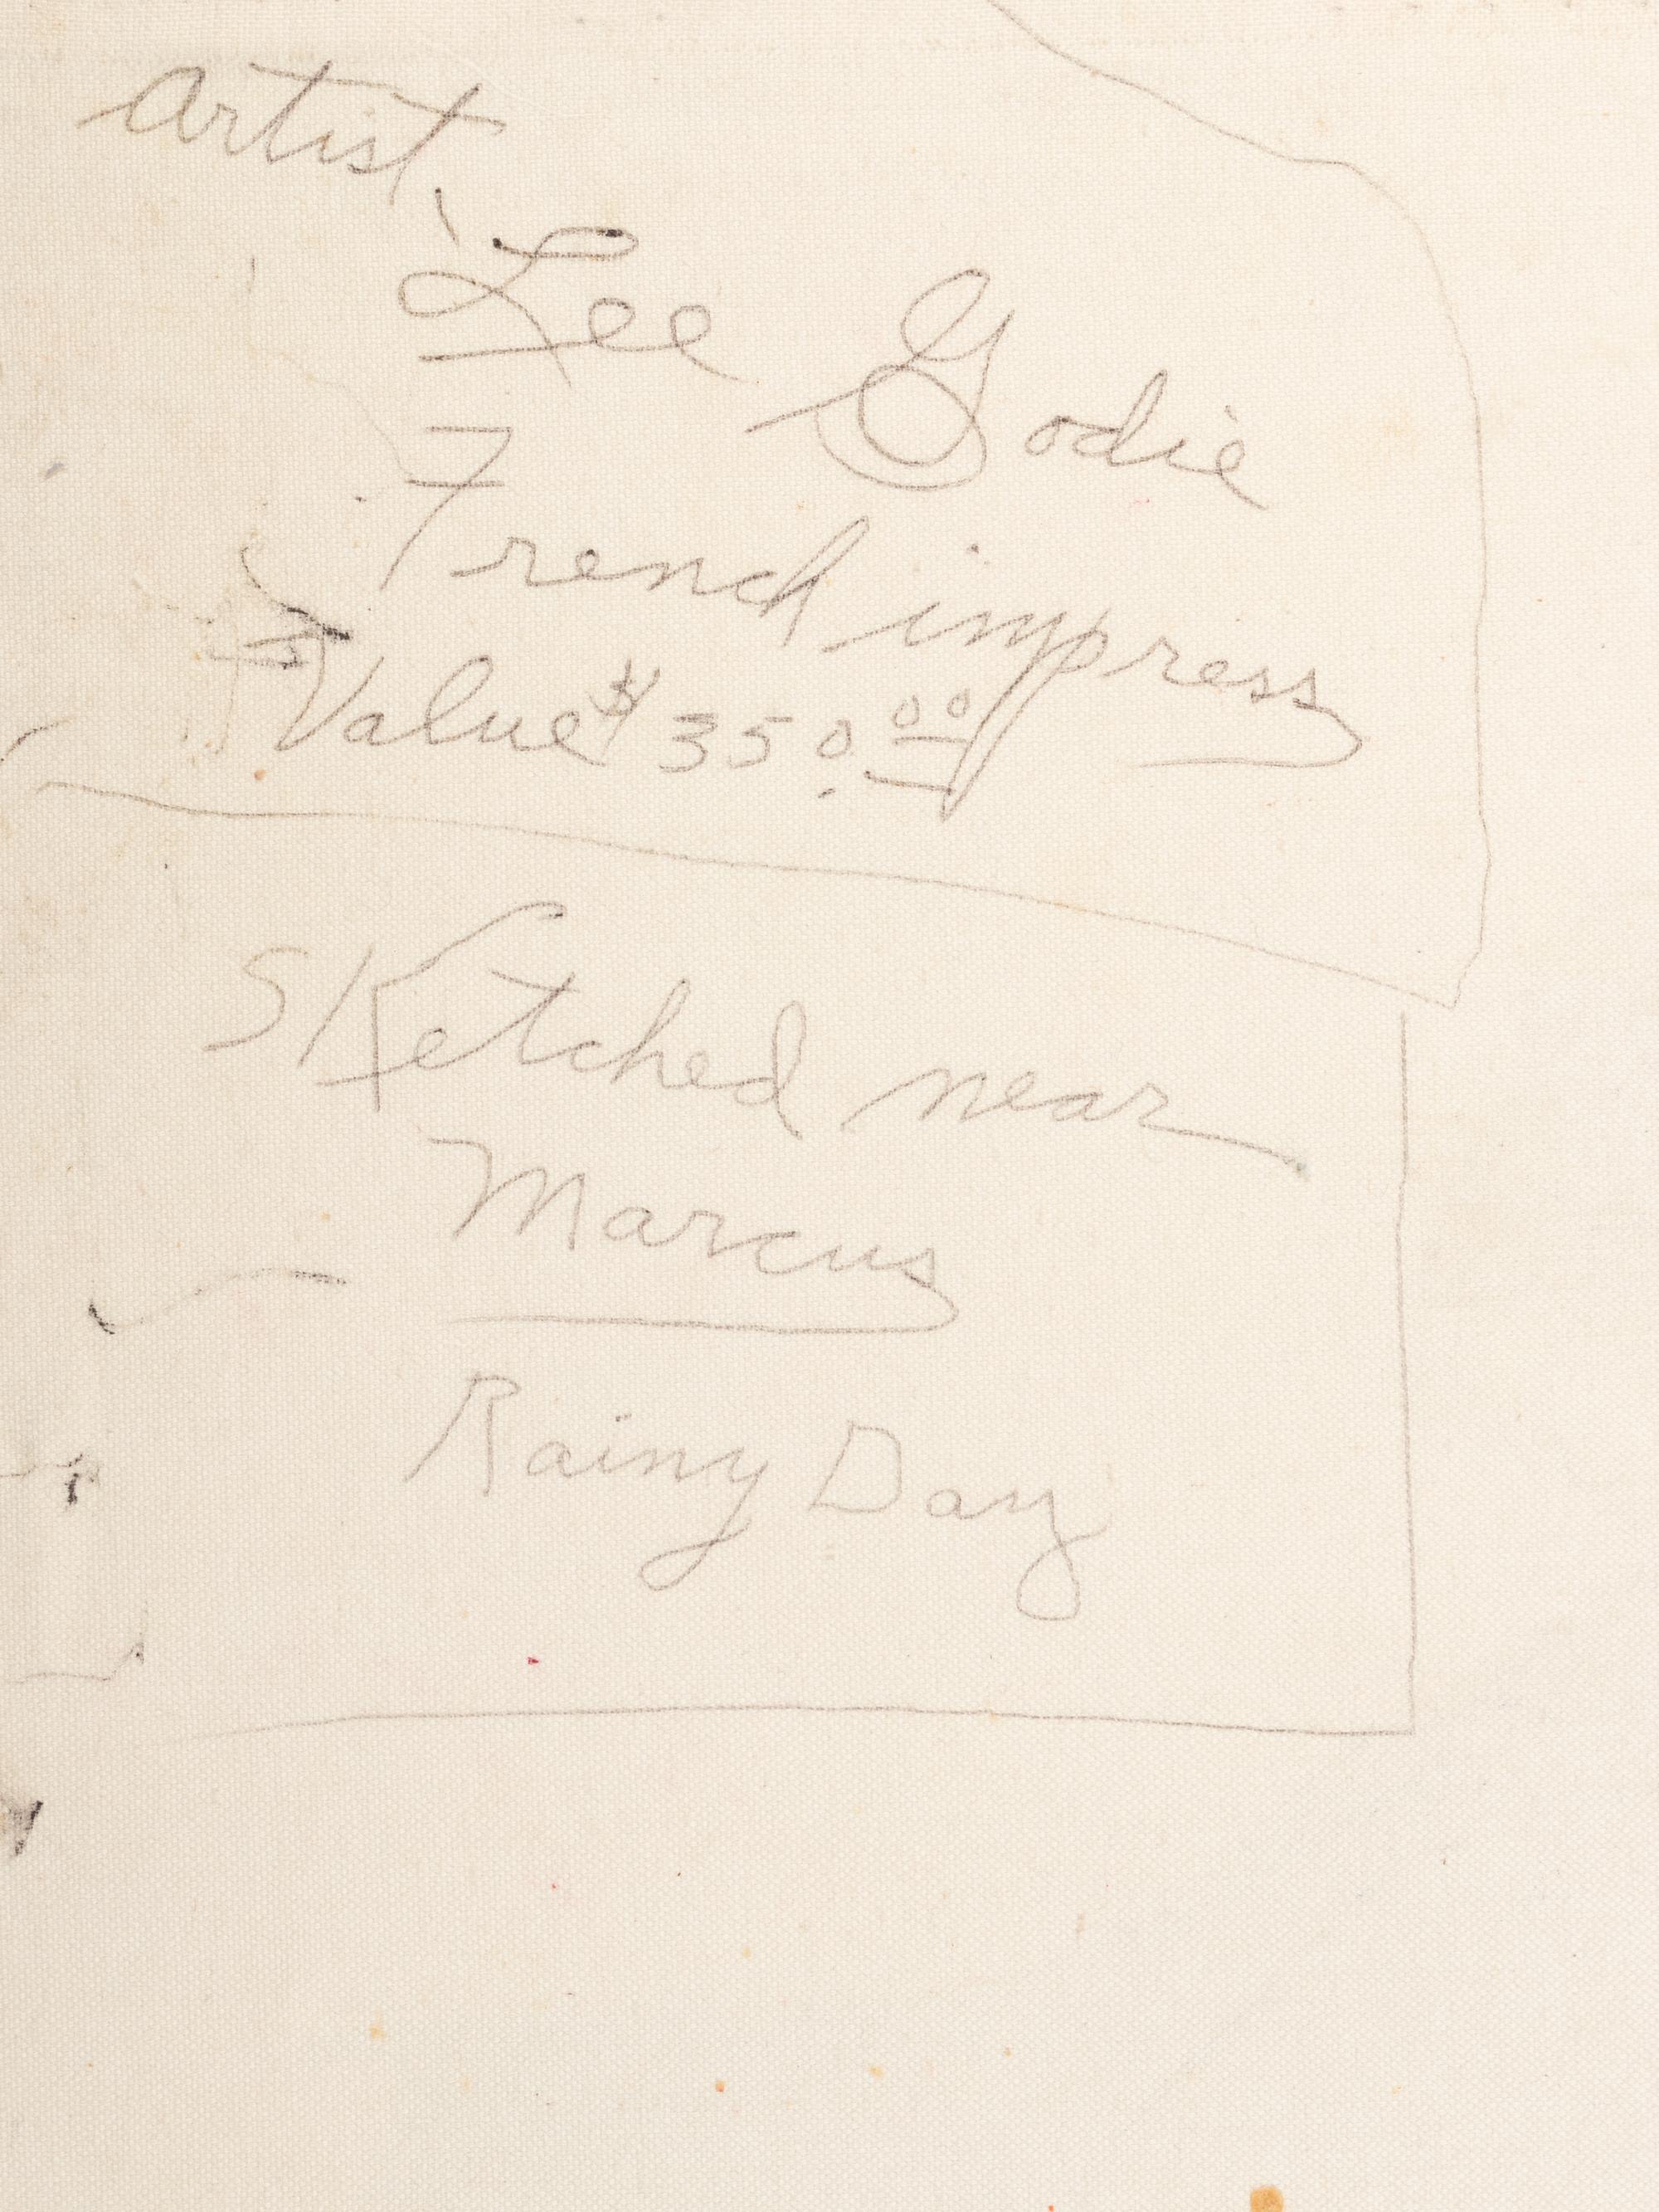 Artist
Lee Godie
French impress
Value $350.00
Sketched near
Marcus
Rainy Day